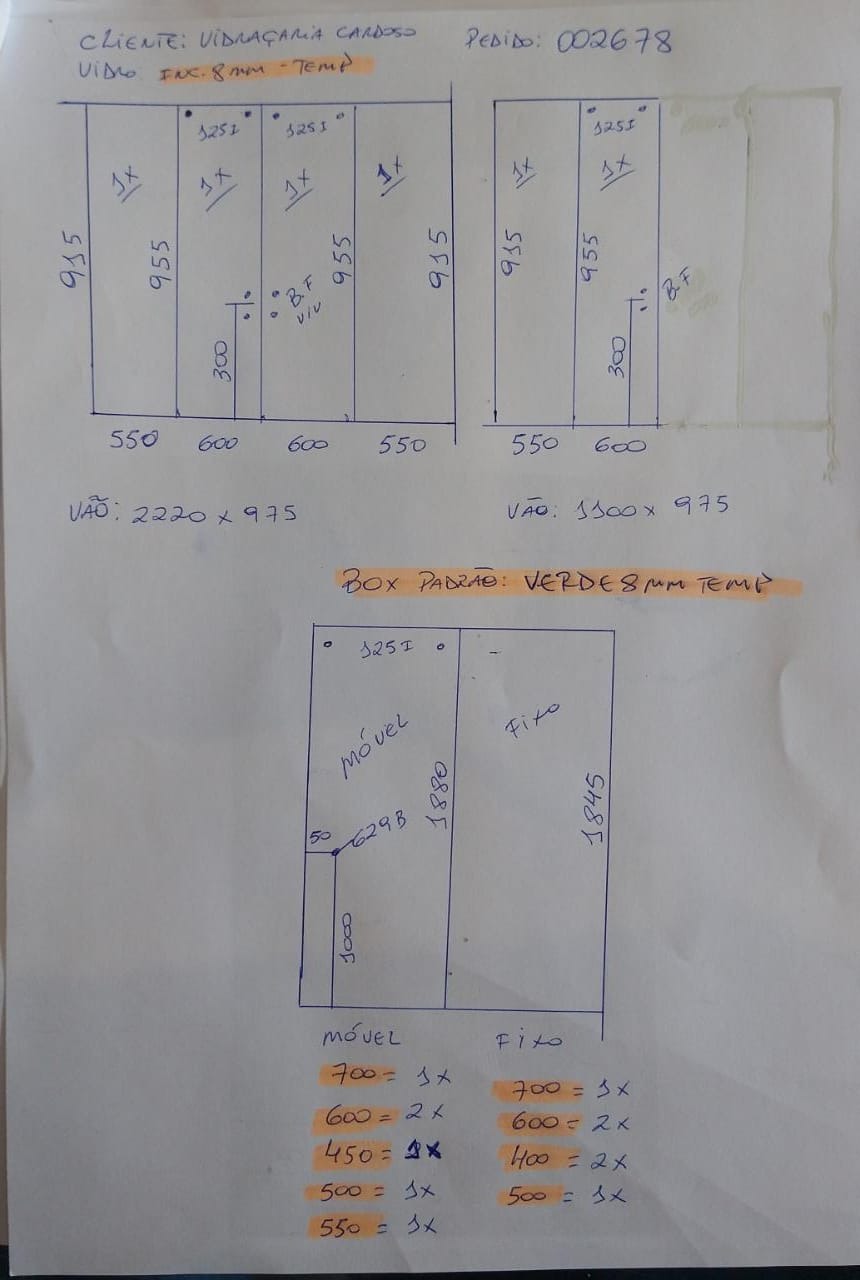 CLIENTE: VIDRAÇARIA CARDOSO
PEDIDO: 002678
VIDRO: INC. 8mm - TEMP
125I
125I
1x
1x
1x
1x
915
955
955
915
B.F
V/V
300
550
600
600
550
VÃO: 2220 x 975
125I
1x
1x
915
955
B.F
300
550
600
VÃO: 1100 x 975
BOX PADRÃO: VERDE 8mm TEMP
125I
MÓVEL
FIXO
1880
1845
50
629B
1000
MÓVEL
700 = 1x
600 = 2x
450 =
500 = 1x
550 = 1x
FIXO
700 = 1x
600 = 2x
400 = 2x
500 = 1x